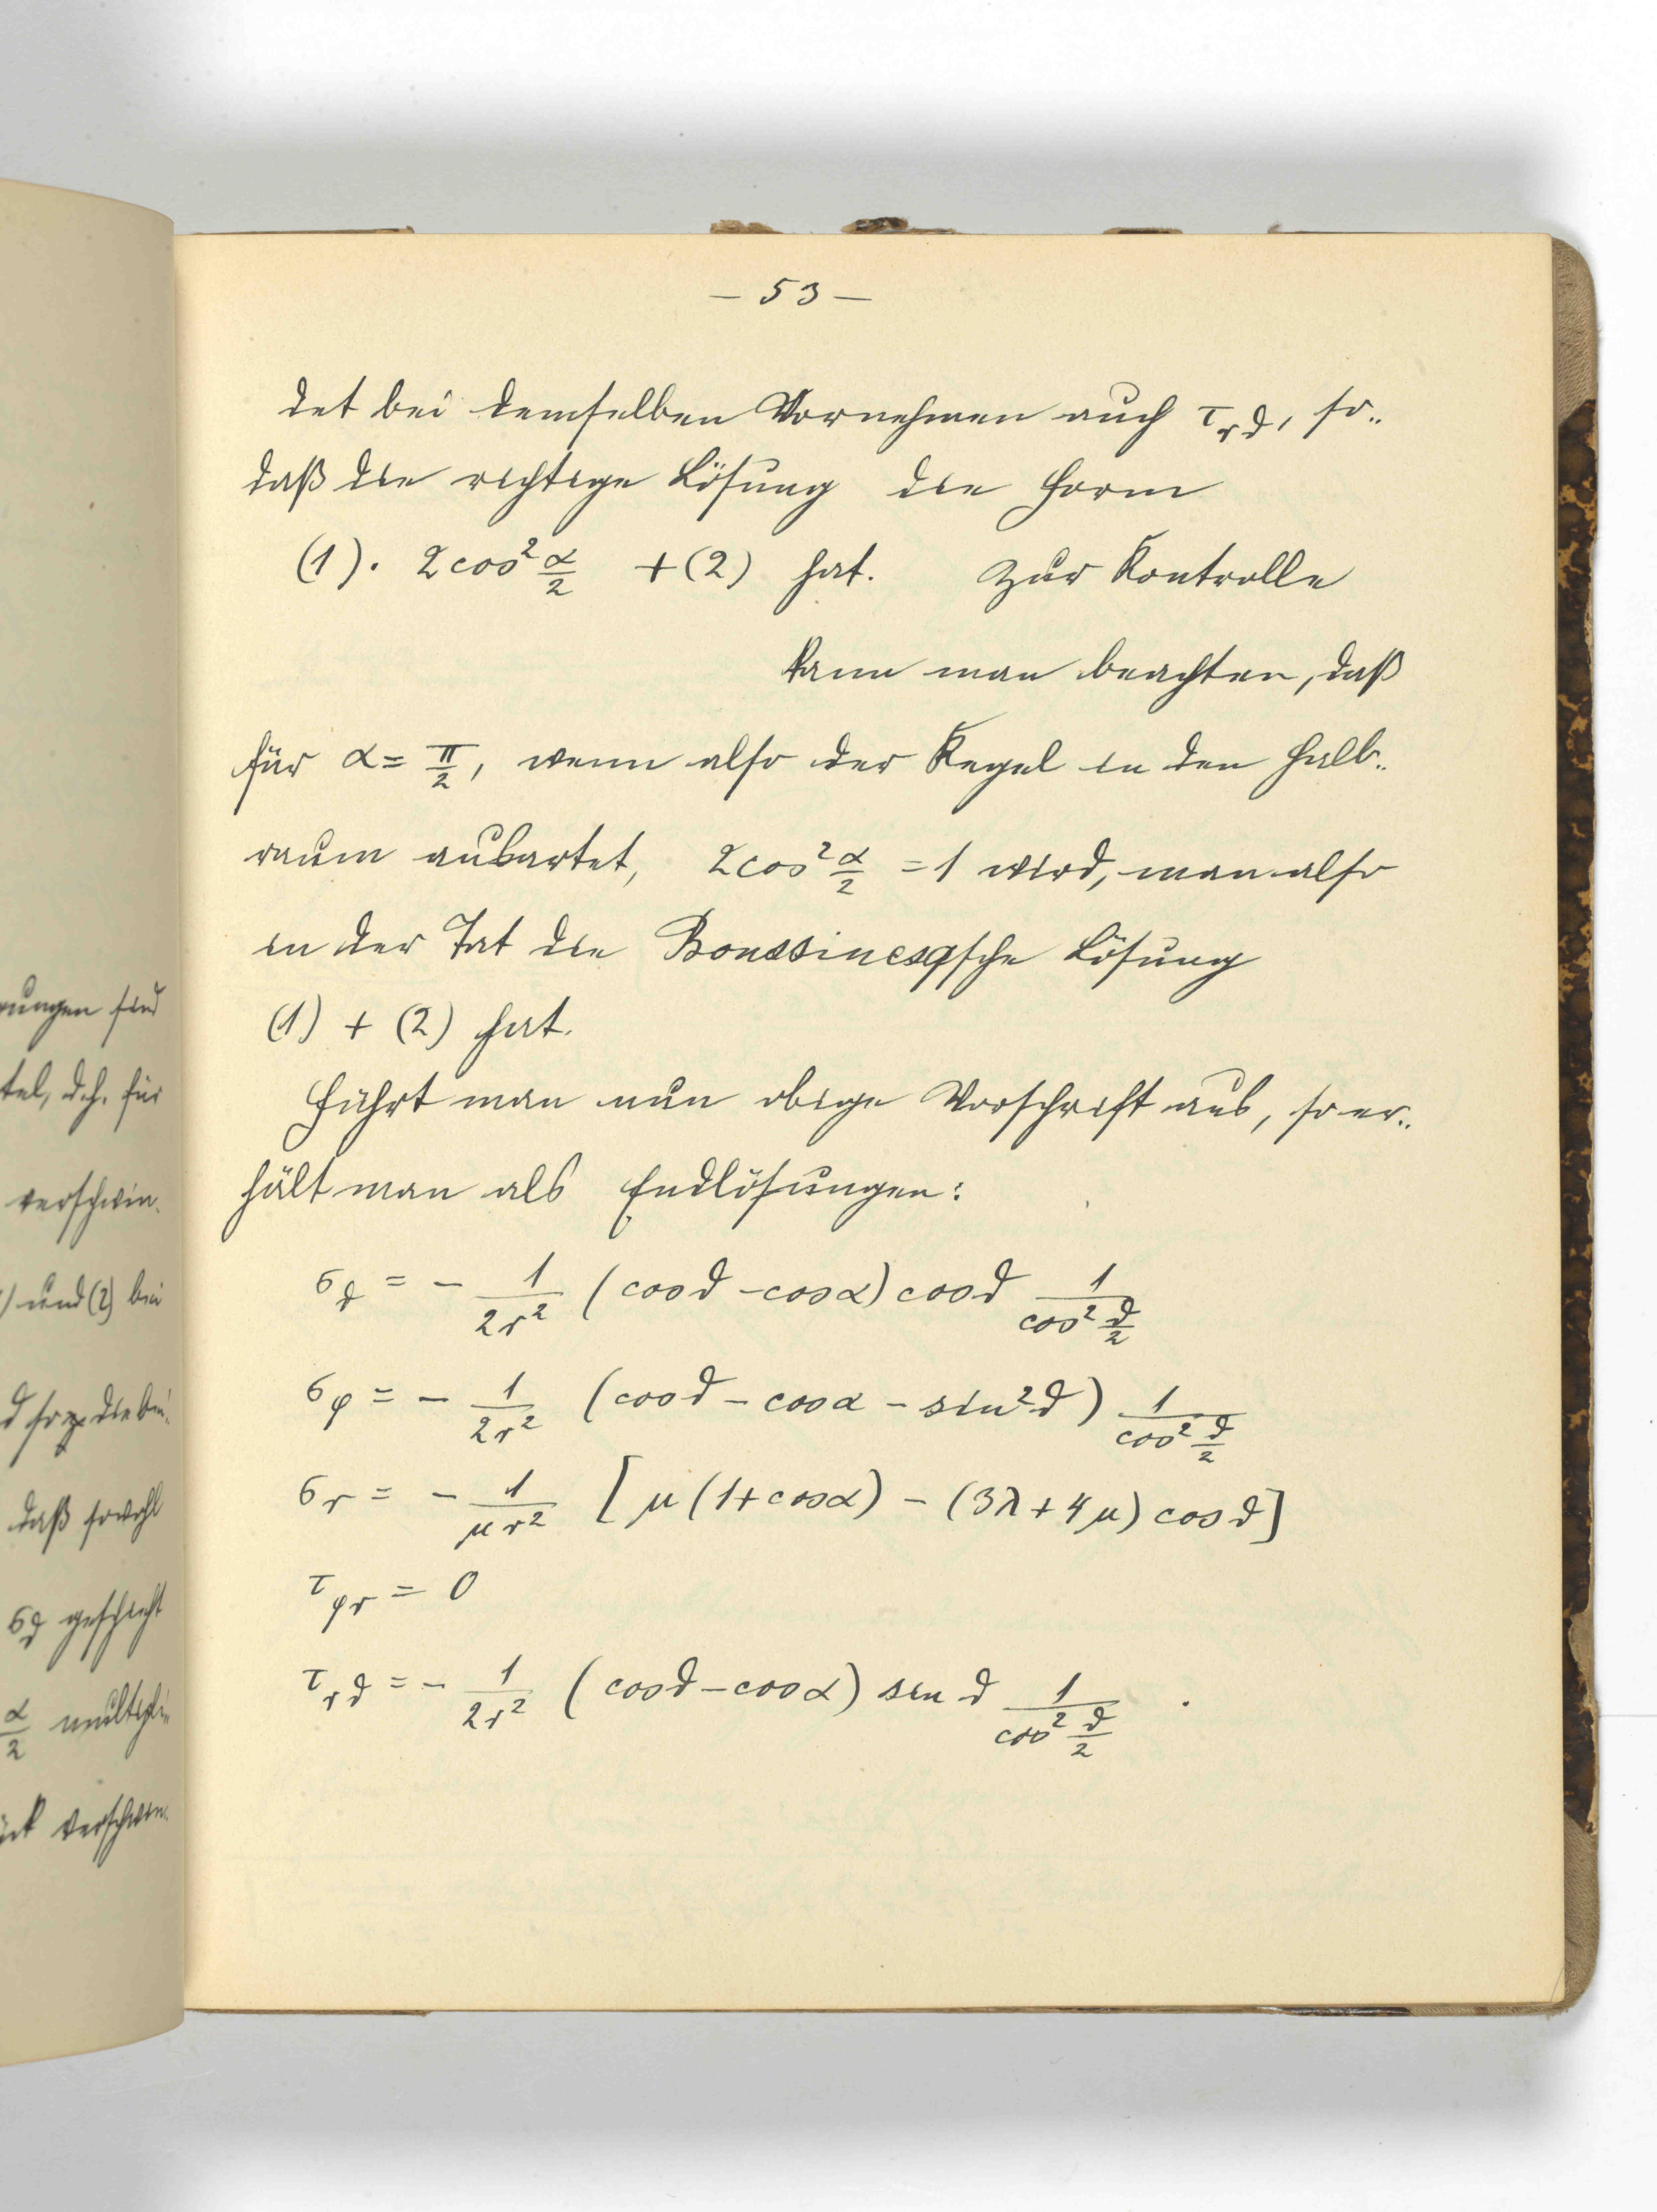 — 53 —
det bei demselben Vornehmen auch τ_rϑ, so-
daß die richtige Lösung die Form
(1). 2cos² α/2 + (2) hat. Zur Kontrolle
kann man beachten, daß
für α = π/2, wenn also der Kegel in den Halb-
raum ausartet, 2cos² α/2 = 1 wird, man also
in der Tat die Boussinesqsche Lösung
(1) + (2) hat.
Führt man nun obige Vorschrift aus, so er-
hält man als Endlösungen:
σ_ϑ = - 1/2r² (cosϑ - cosα) cosϑ 1/cos² ϑ/2
σ_φ = - 1/2r² (cosϑ - cosα - sin²ϑ) 1/cos² ϑ/2
σ_r = - 1/μr² [μ(1+cosα) - (3λ+4μ) cosϑ]
τ_φr = 0
τ_rϑ = - 1/2r² (cosϑ - cosα) sin ϑ 1/cos² ϑ/2 .
rungen sind
tel, d.h. für
verschwin-
) und (2) bei
daß sowohl
σ_ϑ geschieht
α/2 multipli-
verschwin-